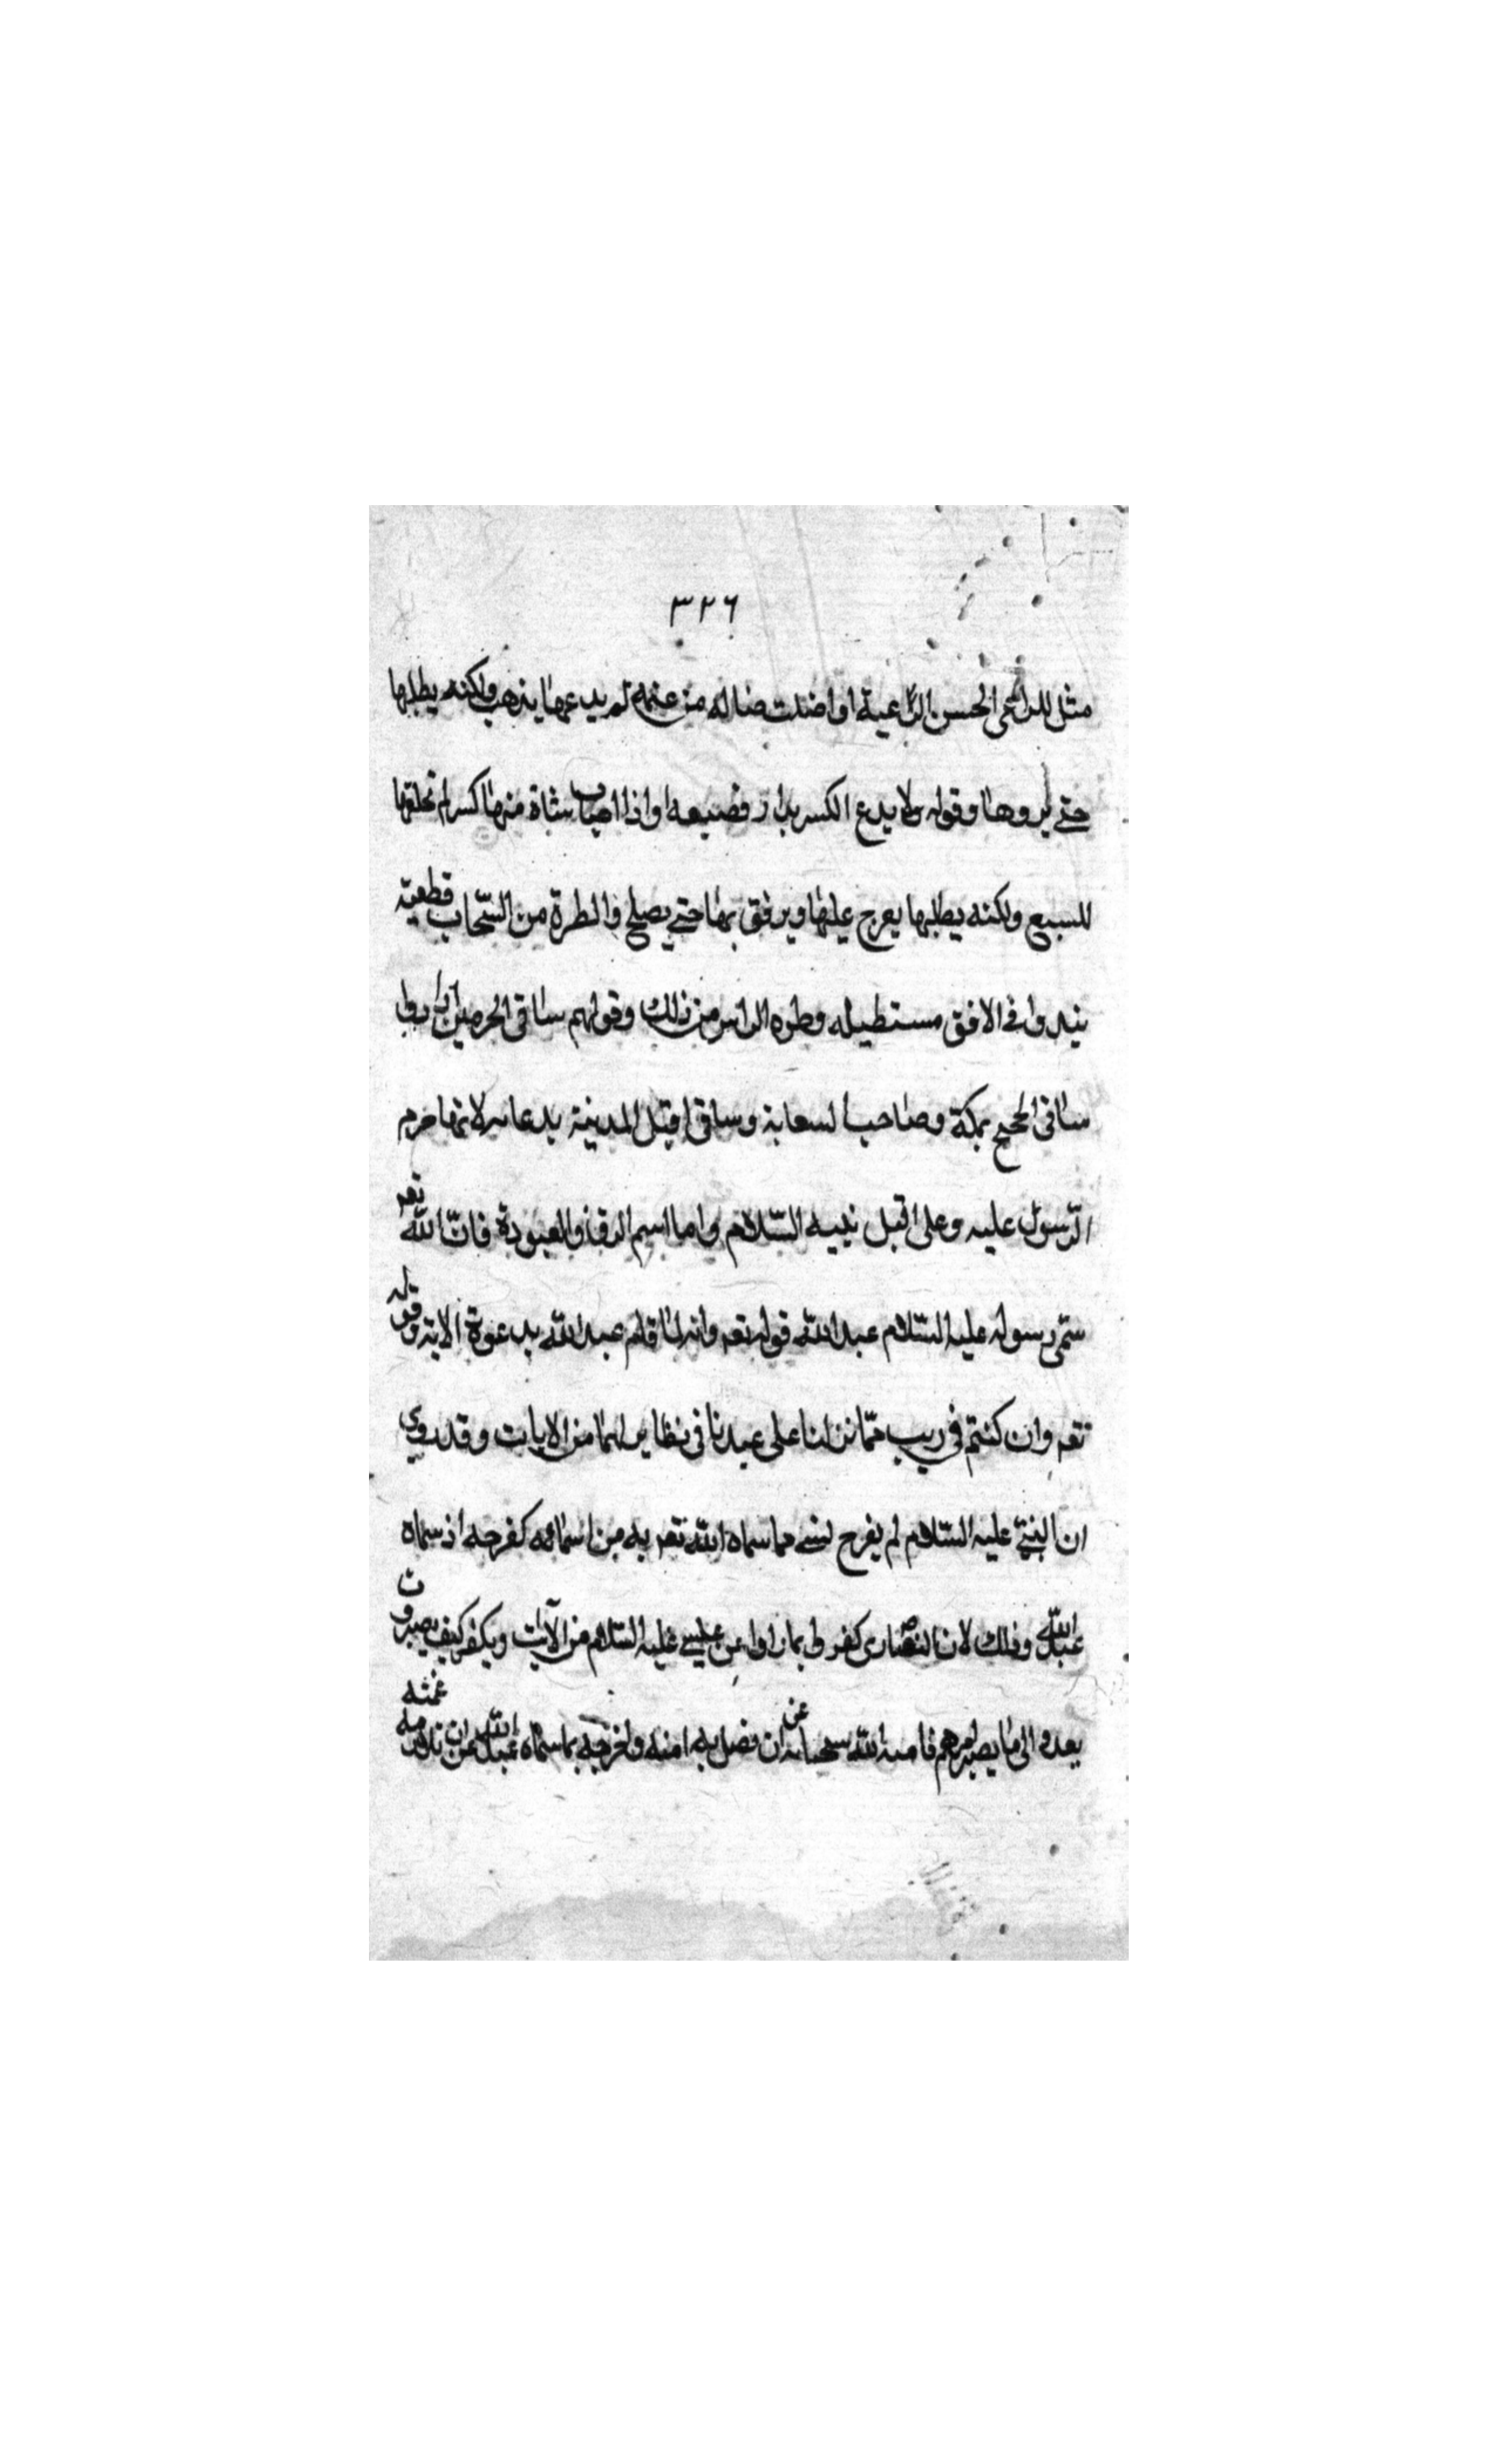 ٣٢٦
مثل للداعي الحسن الراعية اواضلت ضاله من غنمه لم يدعها يذهب ولكنه يطلبها
حتى يردها وقوله ولا يدع الكسير بدار فضيعه او اذا اصاب شاة منها كسر لم تخلفها
للسبع ولكنه يطلبها يعرج عليها ويرفق بها حتى يصلح والطرة من السحاب قطعية
يبدوا في الافق مستطيله وطره الراس من ذلك وقولهم ساقي الحرمين ارادوا
ساقى الحجيج بمكة وصاحب لسعابة وساقى اقبل المدينة بدعايه لانها حرم
الرسول عليه وعلى اقبل نبيه السلام واما اسم الرق والعبودة فان الله تعه
سمى رسوله عليه السلام عبد الله قوله تعه وانه لما قام عبد الله يدعوه الاية وقوله
تعه وان كنتم في ريب مما نزلنا على عبدنا في نظاير لهما من الايات وقد روي
ان النبي عليه السلام لم يفرح لشى مما سماه الله تعه به من اسمائه كفرحه اذ سماه
عبد الله وذلك لان النصارى كفروا بما راوا عن عيسى عليه السلام من الآيات ويكفر كيف يصيرون
بعده الى ما يصير امرهم فامنه الله سبحانه ان فضل به امته وافرحه بما سماه عبد الله عن ان